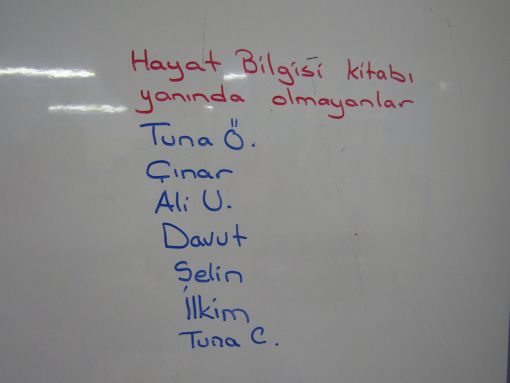 Hayat Bilgisi kitabı
yanında olmayanlar
Tuna Ö.
Çınar
Ali U.
Davut
Şelin
İlkim
Tuna C.